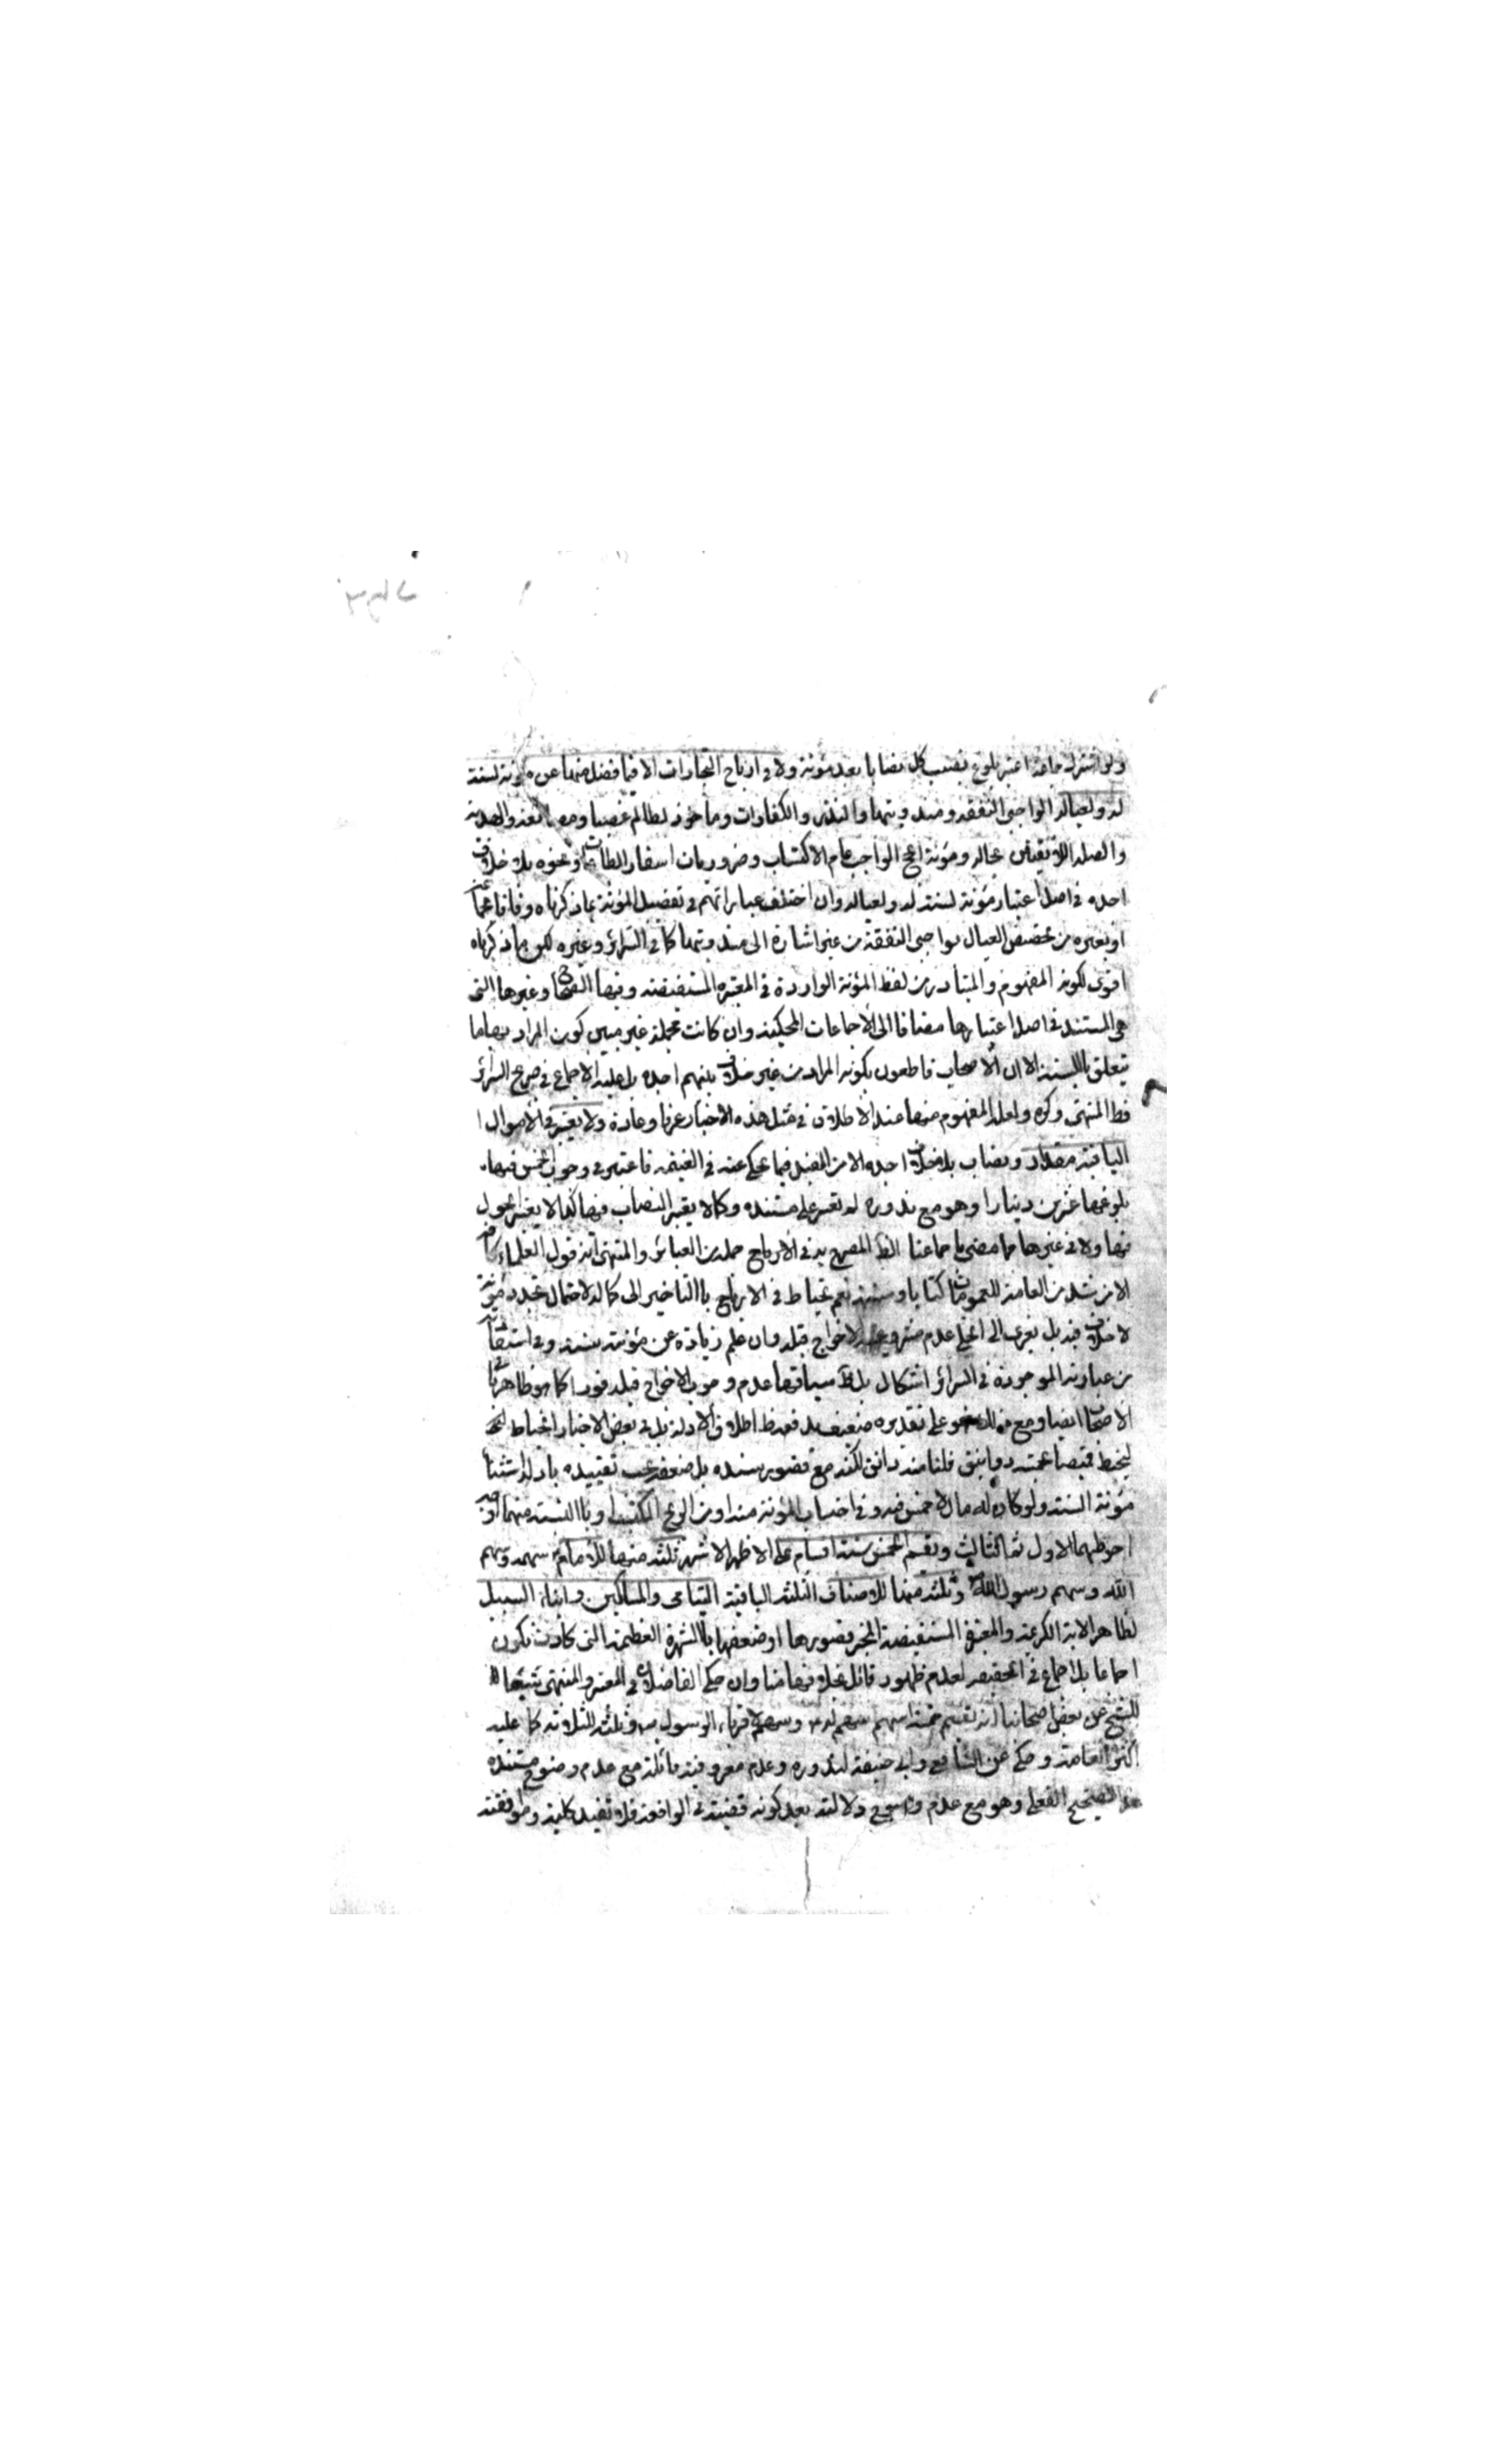 ولو اشترك جماعة اعتبر بلوغ نصيب كل نصابا بعد مؤنة ولا في ارباح التجارات الا فيما فضل منها عن مؤنة لسنة
له ولعياله الواجبي النفقة ومندوبتها والنذر والكفارات وماخوذ لظالم غصبا او مصانعة والهدية
والصلة اللائقين بحاله ومؤنة الحج الواجب عام الاكتساب وضروريات اسفار الطاعات ونحوه بلا خلاف
اجده في اصل اعتبار مؤنة لسنة له ولعياله وان اختلف عباراتهم في تفصيل المؤنة بما ذكرناه وفاقا لجماعة
او بغيره من تخصيص العيال بواجبي النفقة من غير اشارة الى مندوبتها كما في السرائر وغيره لكن ما ذكرناه
اقوى لكونه المفهوم والمتبادر من لفظ المؤنة الواردة في المعتبرة المستفيضة وفيها الصحاح وغيرها التي
هي المستند في اصل اعتبارها مضافا الى الاجماعات المحكية وان كانت مجملة غير مبين كون المراد بها ما
يتعلق بالسنة الا ان الاصحاب قاطعون بكونه المراد من غير خلاف بينهم اجده بل عليه الاجماع في صريح السرائر
وظ المنتهى وكره ولعله المفهوم منها عند الاطلاق في مثل هذه الاخبار عرفا وعادة ولا يعتبر في الاموال
الباقية مقدار ونصاب بلا خلاف اجده الا من المفيد فيما حكي عنه في الغنيمة فاعتبر في وجوب الخمس فيها
بلوغها عشرين دينارا وهو مع ندوره لم نقف على مستنده وكما لا يعتبر النصاب فيها كذا لا يعتبر الحول
فيها ولا في غيرها مما مضى باجماعنا الظ المصرح به في الارباح والمنتهى انه قول العلماء كافة
الا من شذ من العامة للعمومات كتابا وسنة نعم يحتاط في الارباح باالتاخير الى كماله لاحتمال تجدد مؤنة
لا خلاف فيه بل يعزى الى الحلي عدم مشروعية الاخراج قبله وان علم زيادة عن مؤنة سنته وفي استفادته
من عبارته الموجودة في السرائر اشكال بل ظ سياقها عدم وجوب الاخراج قبله فورا كما هو ظاهر باقي
الاصحاب ايضا ومع ذلك هو على تقديره ضعيف يدفعه ظ اطلاق الادلة بل في بعض الاخبار الخياط
ليخيط قميصا بخمسة دوانيق فلنا منه دانق لكنه مع قصور سنده بل ضعفه يجب تقييده بادلة استثناء
مؤنة السنة ولو كان له مال لا خمس فيه وفي احتساب المؤنة منه او من الربح المكتسب او باالنسبة منهما اوجه
احوطهما الاول ثم الثالث ويقسم الخمس ستة اقسام على الاظهر الاشهر ثلثة منها للامام ع سهمه وسهم
الله وسهم رسول الله ص وثلثة منها للاصناف الثلثة الباقية اليتامى والمساكين وابناء السبيل
لظاهر الاية الكريمة والمعتبرة المستفيضة المنجبر قصورها او ضعفها باالشهرة العظيمة التي كادت تكون
اجماعا بل اجماع في الحقيقة لعدم ظهور قائل بخلافها منا وان حكى الفاضلان في المعتبر والمنتهى تبعا
للشيخ عن بعض اصحابنا انه يقسم خمسة اسهم سهم له ص وسهم لاقرباء الرسول ص وثلثة للثلاثة كما عليه
اكثر العامة وحكي عن الشافعي وابي حنيفة لندوره وعدم معروفية قائله مع عدم وضوح مستنده
عدا الصحيح الفعلي وهو مع عدم وضوح دلالته بعد كونه قضية في الواقعة فلا تفيد كلية وموافقته